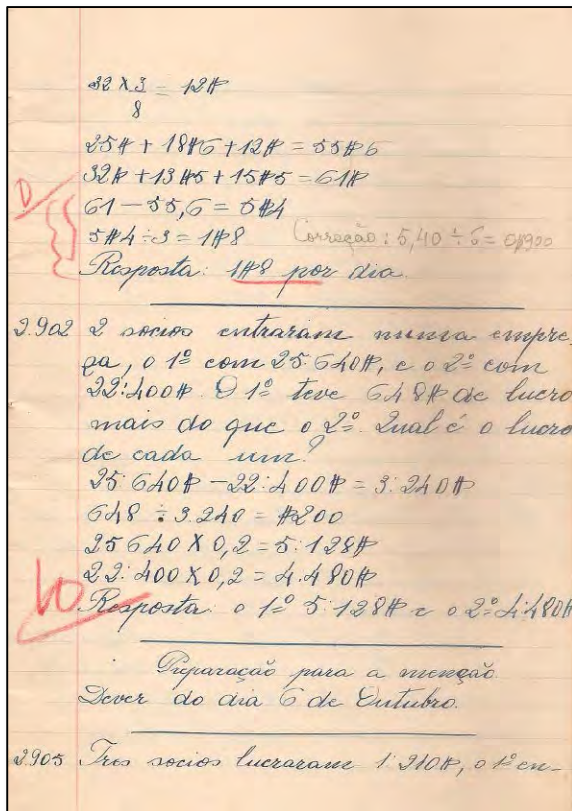 32 X 3/8 = 12#
25# + 18#6 + 12# = 55#6
32# + 13#5 + 15#5 = 61#
61 — 55,6 = 5#4
5#4 ÷ 3 = 1#8 Correção: 5,40 ÷ 6 = 0#900
Resposta: 1#8 por dia.
2.902 2 socios entraram numa empre-
za, o 1º com 25:640#, e o 2º com
22:400#. O 1º teve 648# de lucro
mais do que o 2º. Qual é o lucro
de cada um?
25:640# — 22:400# = 3:240#
648 ÷ 3.240 = #200
25640 X 0,2 = 5:128#
22:400 X 0,2 = 4.480#
10 Resposta: o 1º 5:128# e o 2º 4:480#
Preparação para a menção.
Dever do dia 6 de Outubro.
2.905 Tres socios lucraram 1:210#, o 1º en-